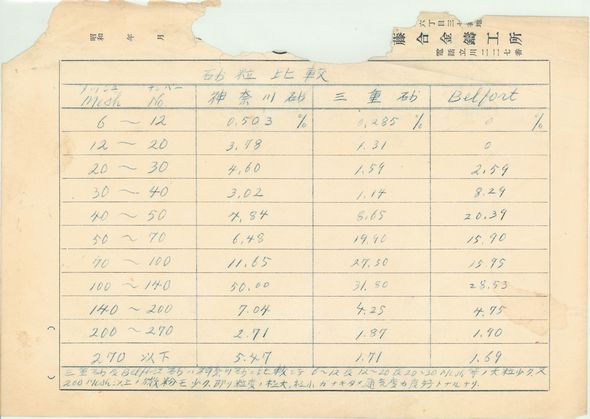 六丁目三十
藤合金鑄工所
電話立川二二七番
昭和 年 月
砂粒比較
メッシュ ナンバー
Mesh No. 神奈川砂 三重砂 Belfort
6 〜 12 0.503 % 0.285 % 0 %
12 〜 20 3.78 1.31 0
20 〜 30 4.60 1.59 2.59
30 〜 40 3.02 1.14 8.29
40 〜 50 4.84 8.65 20.39
50 〜 70 6.48 19.90 15.90
70 〜 100 11.65 27.30 15.95
100 〜 140 50.00 31.80 28.53
140 〜 200 7.04 4.25 4.75
200 〜 270 2.71 1.87 1.90
270 以下 5.47 1.71 1.69
三重砂及Belfort砂ハ神奈川砂ニ比較シテ 6〜12及12〜20及20〜30 Mesh等ノ大粒少ク又
200 Mesh以上ノ微粉モ少ク、即リ粒度ノ粒大、粒小